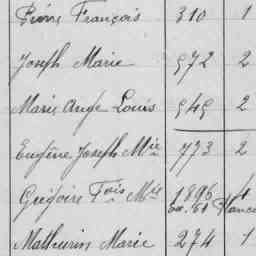 Pierre François 310 1
Joseph Marie 572 2
Marie Ange Louis 545 2
Eugène Joseph Mie 773 2
Grégoire Fois Mie 1896
Mathurin Marie 274 1